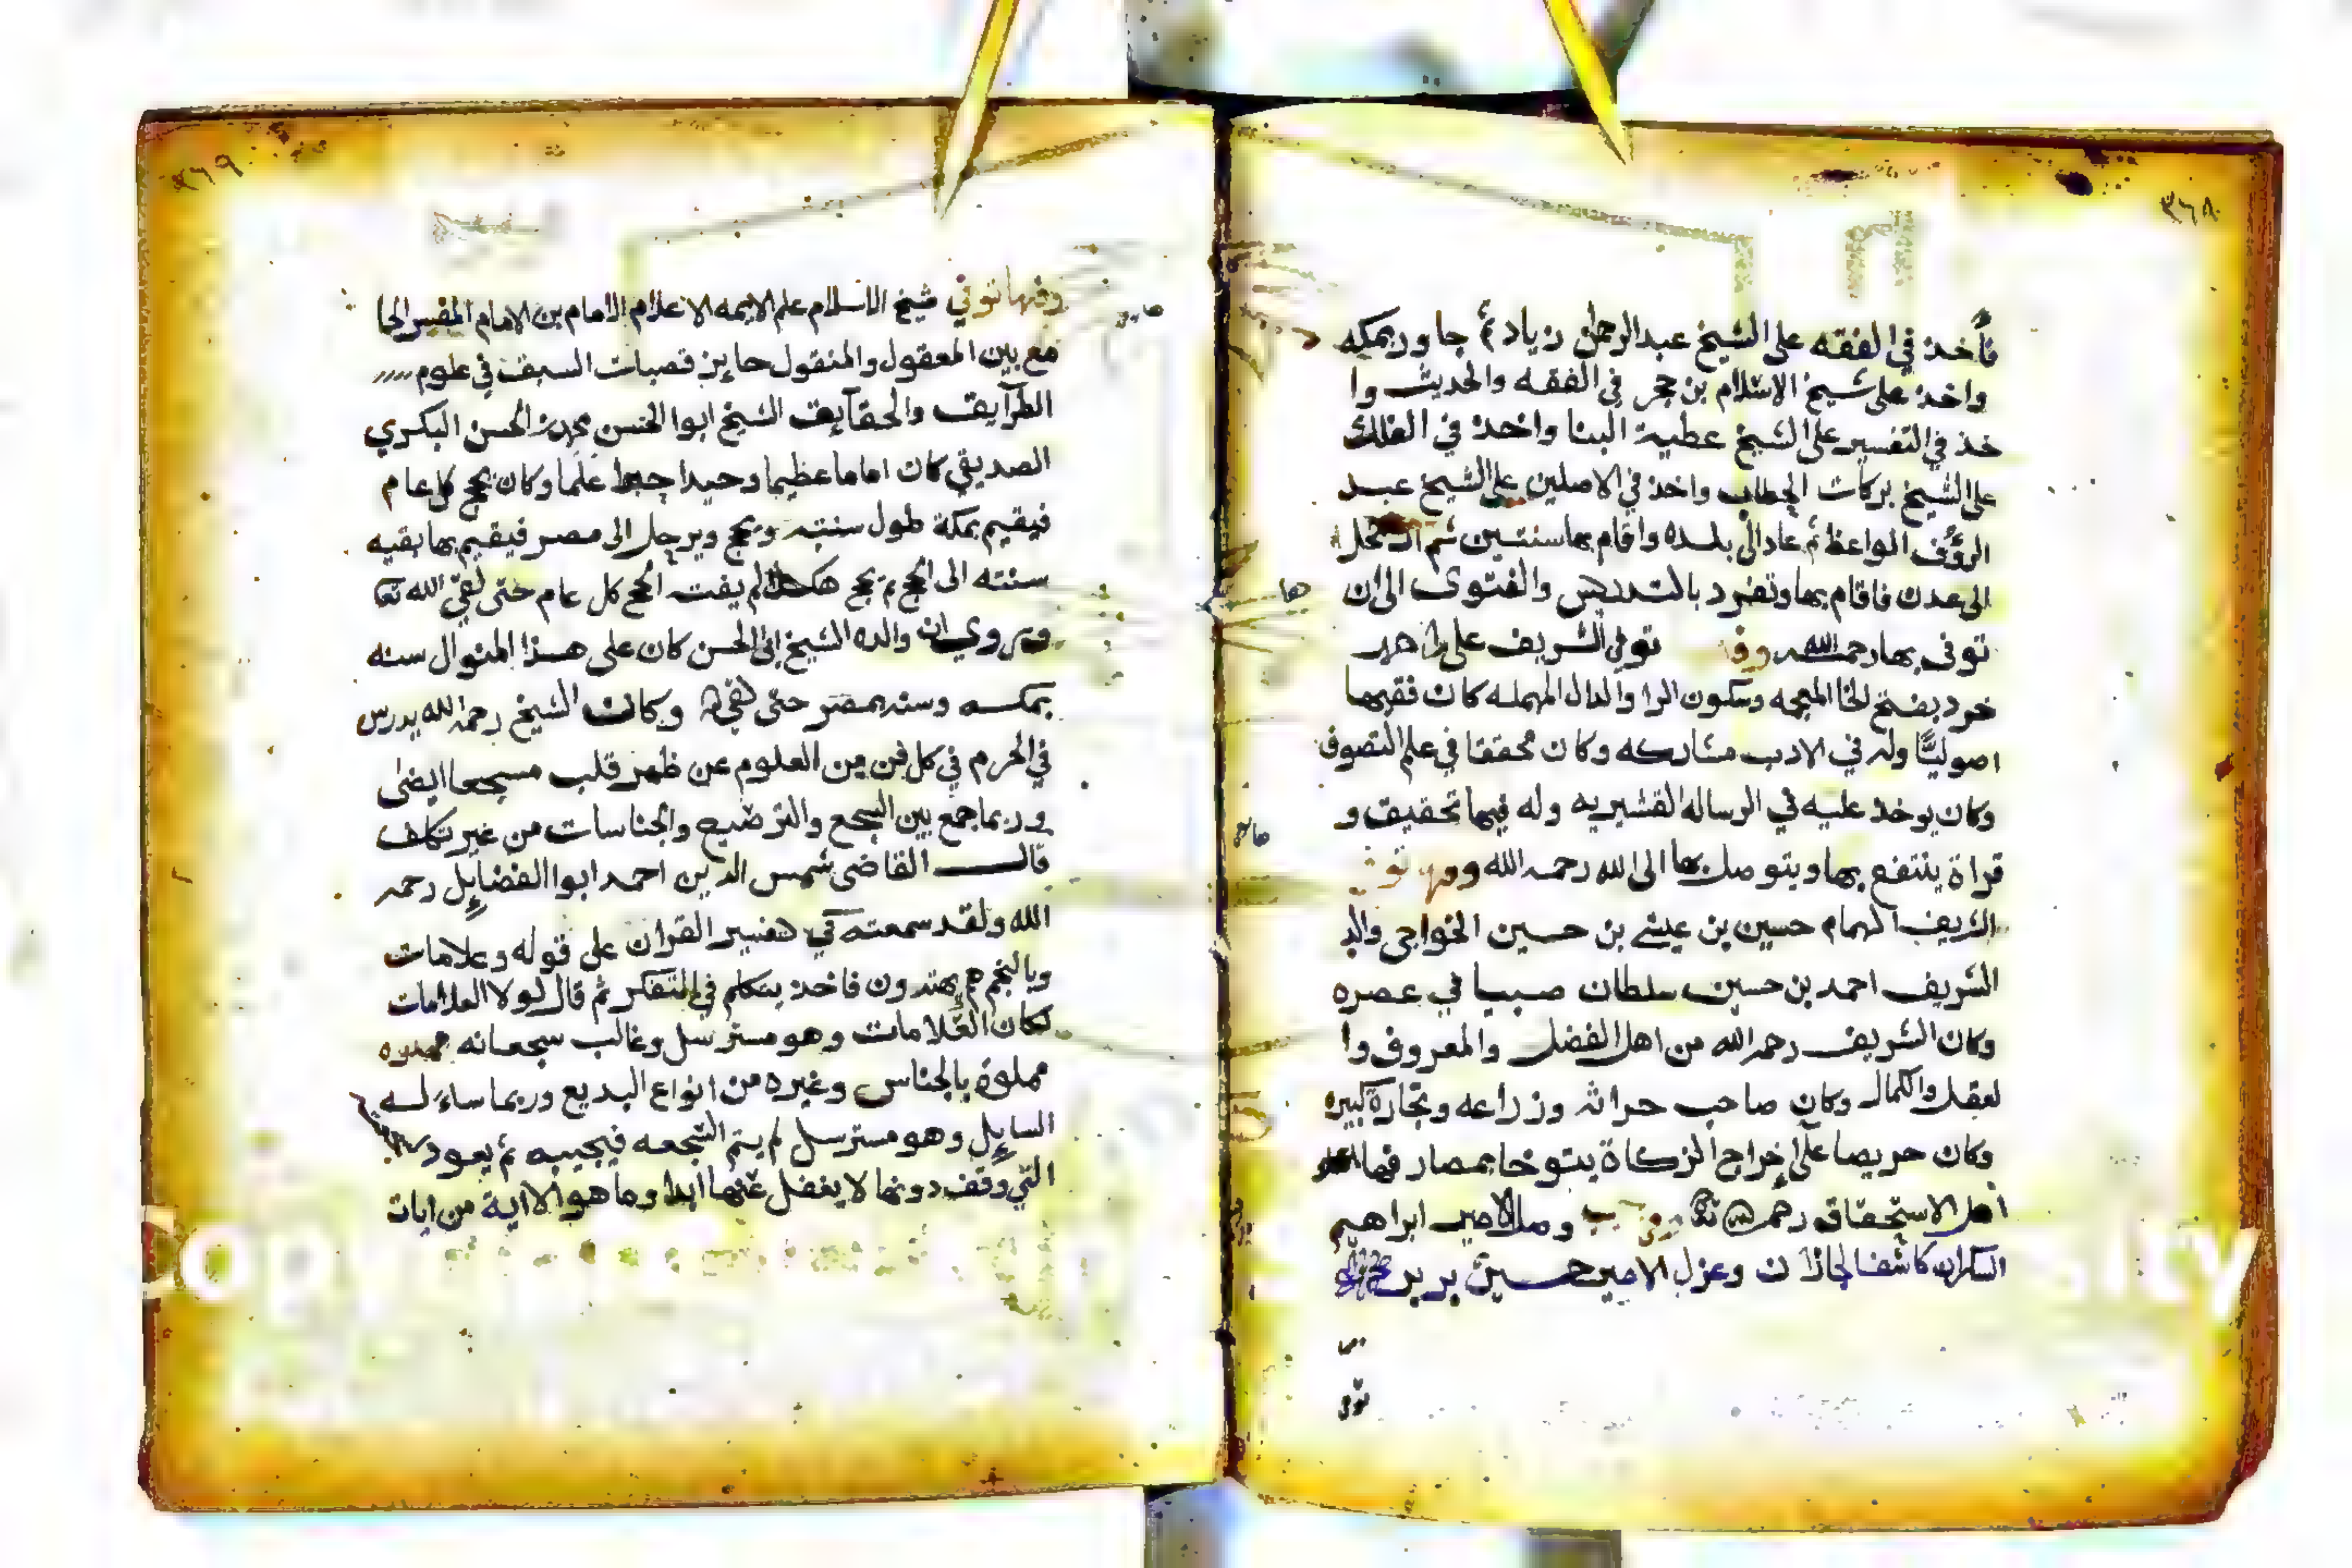 ٣٦٨
فأخذ في الفقه على الشيخ عبد الرحمن زياد ثم جاور بمكه
واخذ على شيخ الاسلام بن حجر في الفقه والحديث وا
خذ في التفسير على الشيخ عطية البنا واخذ في الفلك
على الشيخ بركات الحطاب واخذ في الاصلين على الشيخ عبد
الرؤف الواعظ ثم عاد الى بلده واقام بها سنتين ثم
الى عدن فاقام بها وتفرد بالتدريس والفتوى الى ان
توفى بها رحمه الله توفي الشريف على
خرد بفتح الخا المعجمه وسكون الرا والدال المهمله كان فقيها
اصوليًا وله في الادب مشاركه وكان محققا في علم التصوف
وكان يوخذ عليه في الرساله القشيريه وله فيها تحقيق و
قراة ينتفع بها ويتوصل بها الى الله رحمه الله وفيها توفي
الشريف الهمام حسين بن عيسى بن حسين الخواجى والد
الشريف احمد بن حسين سلطان صبيا في عصره
وكان الشريف رحمه الله من اهل الفضل والمعروف وا
لعقل والكمال وكان صاحب حراثه وزراعه وتجارة كبيره
وكان حريصا على إخراج الزكاة يتوخا بمصارفها
اهل الاستحقاق رحمه الله تعا وصل الامير ابراهيم
السكران كاشفا لجازان وعزل الامير حسين
توفي
٣٦٩
وفيها توفي شيخ الاسلام علم الايمه الاعلام الامام بن الامام المفسر الجا
مع بين المعقول والمنقول حايز قصبات السبق في علوم
الطرآيق والحقآيق الشيخ ابوا الحسن محمد بن الحسن البكري
الصديقي كان اماما عظيما وحيدا علما وكان يحج كل عام
فيقيم بمكة طول سنته ويحج ويرحل الى مصر فيقيم بها بقيه
سنته الى الحج ثم يحج هكذا لم يفت الحج كل عام حتى لقي الله تعا
ويروي ان والده الشيخ ابي الحسن كان على هذا المنوال سنه
بمكه وسنه بمصر حتى لقي وكان الشيخ رحمه الله يدرس
في الحرم في كل فن من العلوم عن ظهر قلب مسجعا ايضى
وربما جمع بين السجع والترضيع والجناسات من غير تكلف
قال القاضى شمس الدين احمد ابوا الفضايل رحمه
الله ولقد سمعته في تفسير القران على قوله وعلامات
وبالنجم هم يهتدون فاخذ يتكلم في التفكر ثم قال لولا العلامات
لكان العلامات وهو مسترسل وغالب سجعاته
مملوة بالجناس وغيره من انواع البديع وربما ساءله
السايل وهو مسترسل لم يتم السجعه فيجيبه ثم يعود
التي وقف دونها لا يغفل عنها ابدا وما هو الا اية من ايات